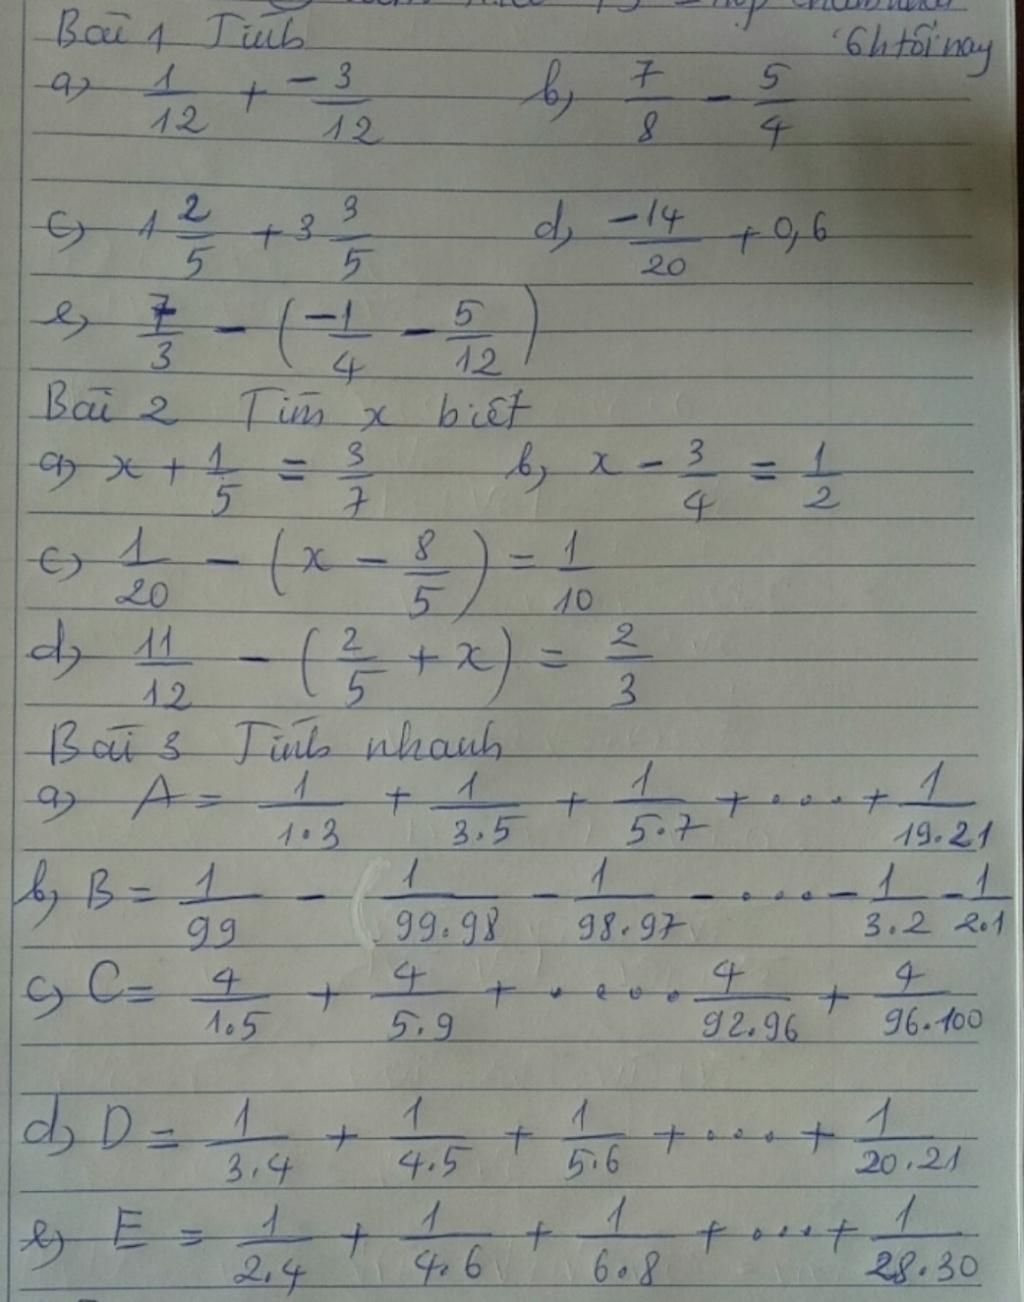 Bài 1 Tính 6h tối nay
a) 1/12 + -3/12 b) 7/8 - 5/4
c) 1 2/5 + 3 3/5 d) -14/20 + 0,6
e) 7/3 - (-1/4 - 5/12)
Bài 2 Tìm x biết
a) x + 1/5 = 3/7 b) x - 3/4 = 1/2
c) 1/20 - (x - 8/5) = 1/10
d) 11/12 - (2/5 + x) = 2/3
Bài 3 Tính nhanh
a) A = 1/1.3 + 1/3.5 + 1/5.7 + .... + 1/19.21
b) B = 1/99 - 1/99.98 - 1/98.97 - .... - 1/3.2 - 1/2.1
c) C = 4/1.5 + 4/5.9 + ..... 4/92.96 + 4/96.100
d) D = 1/3.4 + 1/4.5 + 1/5.6 + .... + 1/20.21
e) E = 1/2.4 + 1/4.6 + 1/6.8 + .... + 1/28.30